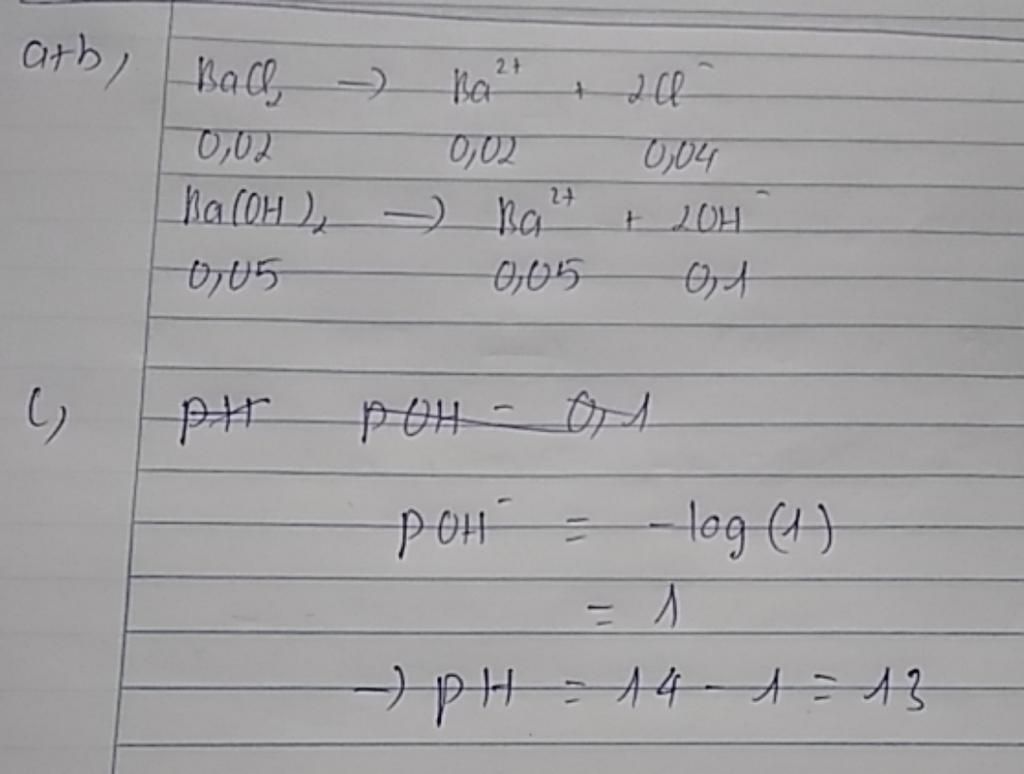 a+b, BaCl₂ → Ba²⁺ + 2Cl⁻
0,02 0,02 0,04
Ba(OH)₂ → Ba²⁺ + 2OH⁻
0,05 0,05 0,1
c, pH pOH = 0,1
pOH⁻ = -log(1)
= 1
→ pH = 14 - 1 = 13